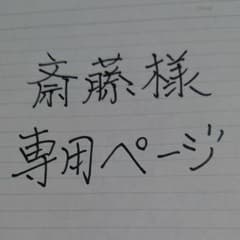 斎藤様
専用ページ